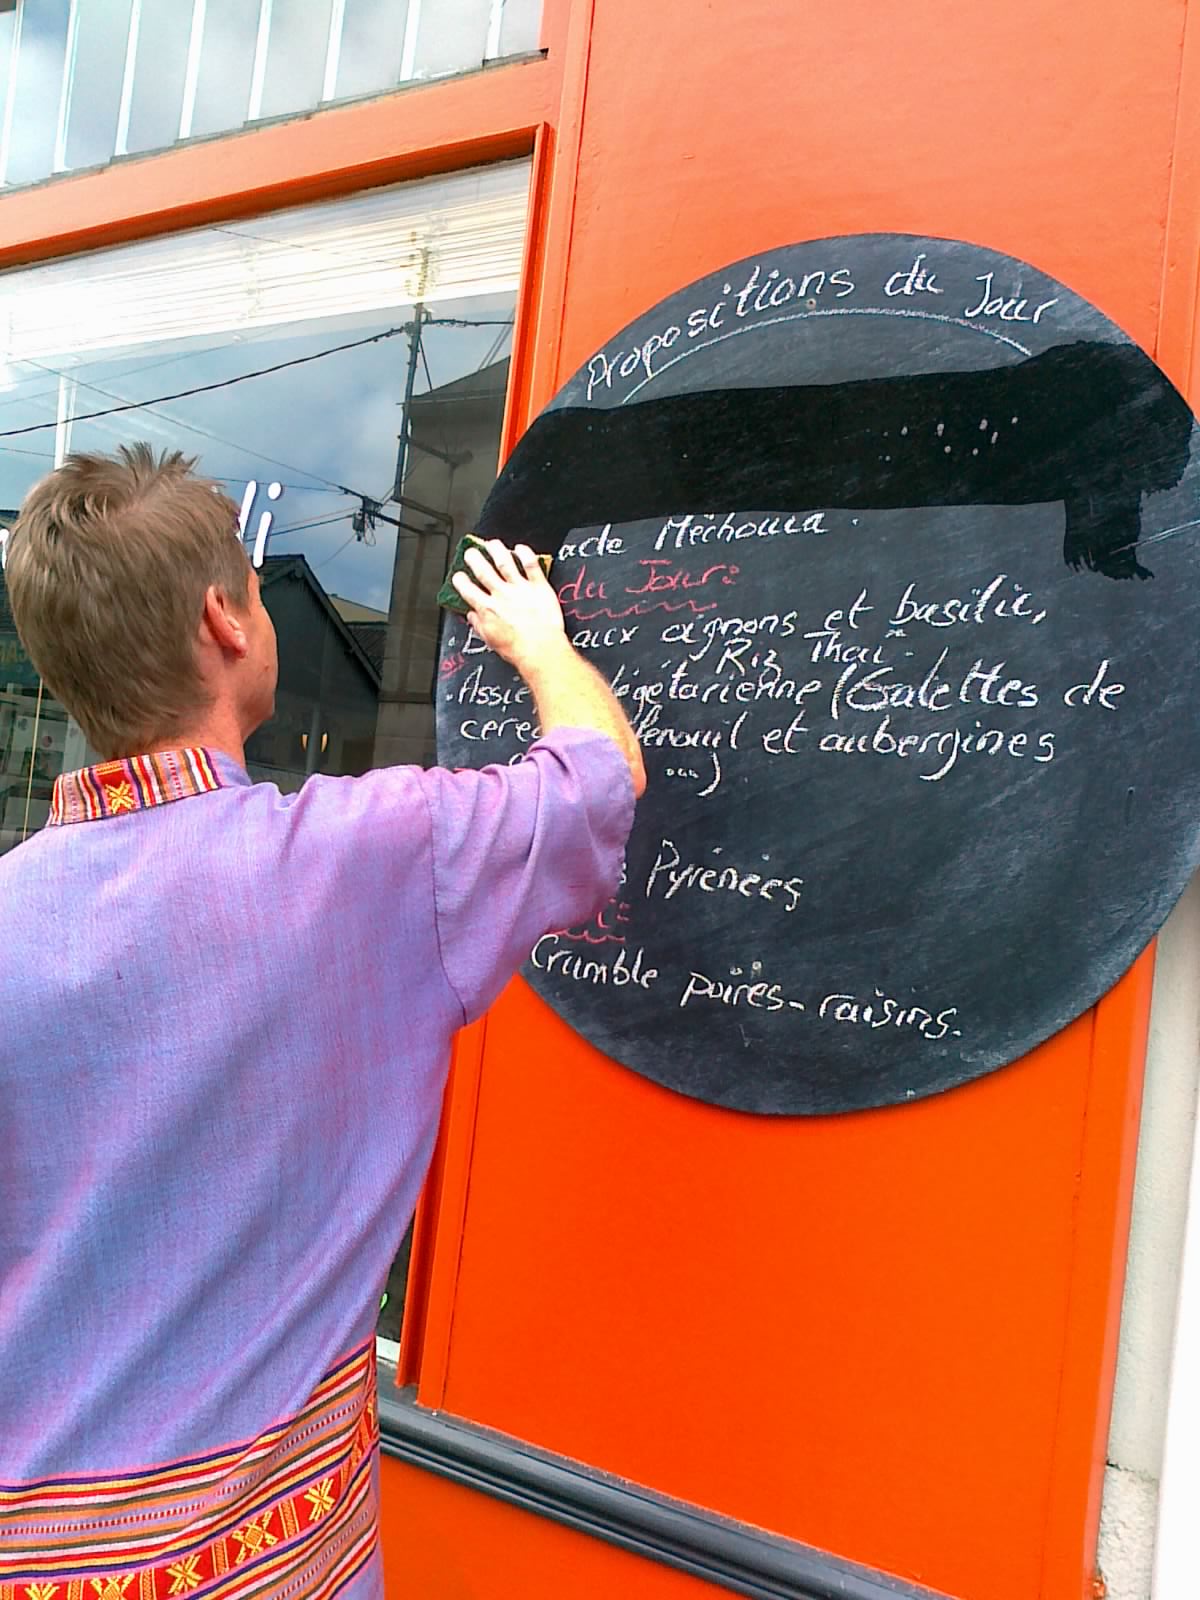 Propositions du Jour
Méchouia.
du Jour:
aux oignons et basilic,
Riz Thaï.
végétarienne (Galettes de
fenouil et aubergines
...)
Pyrénées
Crumble poires-raisins.